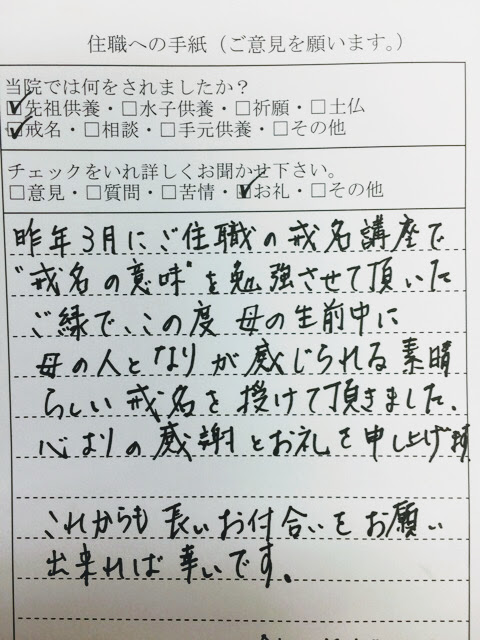 住職への手紙（ご意見を願います。）
当院では何をされましたか？
☑先祖供養・□水子供養・□祈願・□土仏
☑戒名・□相談・□手元供養・□その他
チェックをいれ詳しくお聞かせ下さい。
□意見・□質問・□苦情・☑お礼・□その他
昨年3月にご住職の戒名講座で
"戒名の意味"を勉強させて頂いた
ご縁で、この度 母の生前中に
母の人となりが感じられる素晴
らしい戒名を授けて頂きました。
心よりの感謝とお礼を申し上げ
これからも長いお付合いをお願い
出来れば幸いです。